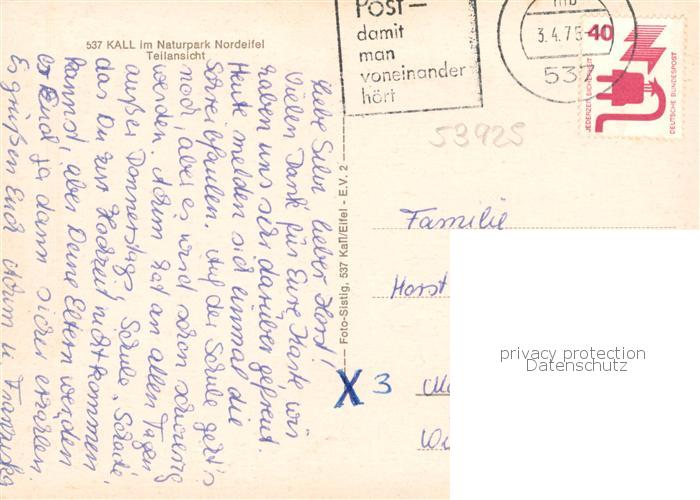 537 KALL im Naturpark Nordeifel
Teilansicht
Liebe Silvi, lieber Horst!
Vielen Dank für Eure Karte, wir
haben uns sehr darüber gefreut.
Heute melden sich einmal die
Schreibfaulen. Auf der Schule geht's
noch, aber es wird schon schwierig
werden. Achim hat an allen Tagen
außer Donnerstags Schule. Schade,
das Du zur Hochzeit nicht kommen
kannst, aber Deine Eltern werden
es Euch ja dann sicher erzählen.
Es grüßen Euch Achim u. Franziska
Foto-Sistig, 537 Kall/Eifel - E.V. 2
Post—
damit
man
voneinander
hört
mb
3.4.75
537
40
JEDERZEIT SICHERHEIT
DEUTSCHE BUNDESPOST
53925
Familie
Horst
X 3
privacy protection
Datenschutz